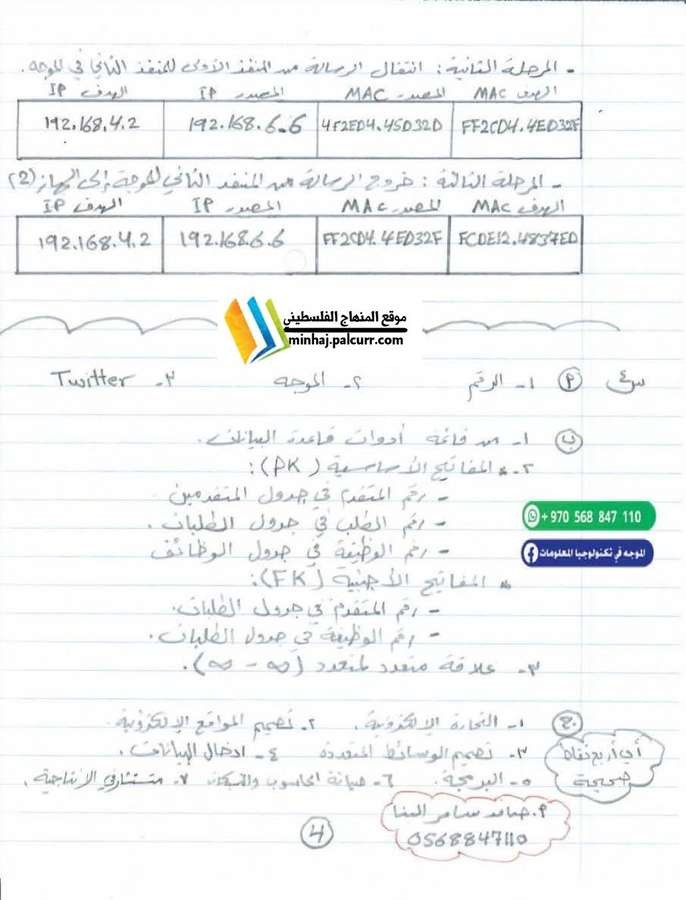 - المرحلة الثانية : انتقال الرسالة من المنفذ الأول للمنفذ الثاني في الموجه .
الهدف MAC المصدر MAC المصدر IP الهدف IP
FF2CD4.4ED32F 4F2ED4.45D32D 192.168.6.6 192.168.4.2
- المرحلة الثالثة : خروج الرسالة من المنفذ الثاني للموجه إلى الجهاز (2)
الهدف MAC المصدر MAC المصدر IP الهدف IP
FCDE12.4837ED FF2CD4.4ED32F 192.168.6.6 192.168.4.2
موقع المنهاج الفلسطيني
minhaj.palcurr.com
س٤ P ١- الرقم ٢- الموجه ٣- Twitter
ب ١- من قائمة أدوات قاعدة البيانات .
٢- * المفاتيح الأساسية (PK) :
- رقم المتقدم في جدول المتقدمين
- رقم الطلب في جدول الطلبات .
+ 970 568 847 110
- رقم الوظيفة في جدول الوظائف
الموجه في تكنولوجيا المعلومات
* المفاتيح الأجنبية (FK) :
- رقم المتقدم في جدول الطلبات .
- رقم الوظيفة في جدول الطلبات .
٣- علاقة متعدد لمتعدد (∞ - ∞) .
ج ١- التجارة الإلكترونية . ٢- تصميم المواقع الإلكترونية .
٣- تصميم الوسائط المتعددة ٤- ادخال البيانات .
أي أربع نقاط
صحيحة
٥- البرمجة . ٦- صيانة الحاسوب والشبكات ٧- مستشار في الإنتاجية .
م. حامد سامر البنا
0568847110
4